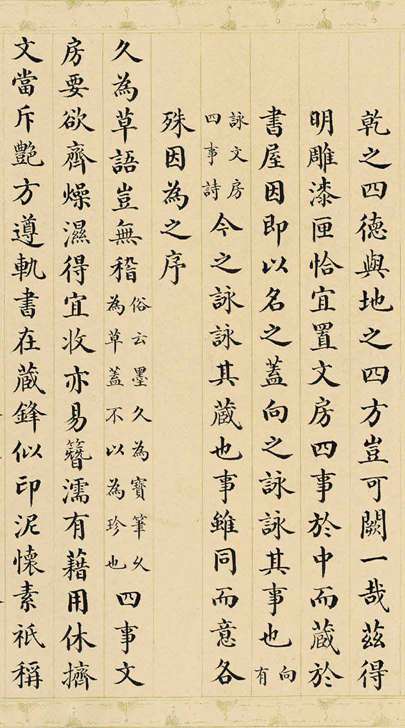 乾之四德與地之四方豈可闕一哉茲得
明雕漆匣恰宜置文房四事於中而藏於
書屋因即以名之蓋向之詠詠其事也向有
詠文房四事詩今之詠詠其藏也事雖同而意各
殊因為之序
久為草語豈無稽俗云墨久為寶筆久為草蓋不以為珍也四事文
房要欲齊燥濕得宜收亦易簪濡有藉用休擠
文當斥艷方遵軌書在藏鋒似印泥懷素祇稱